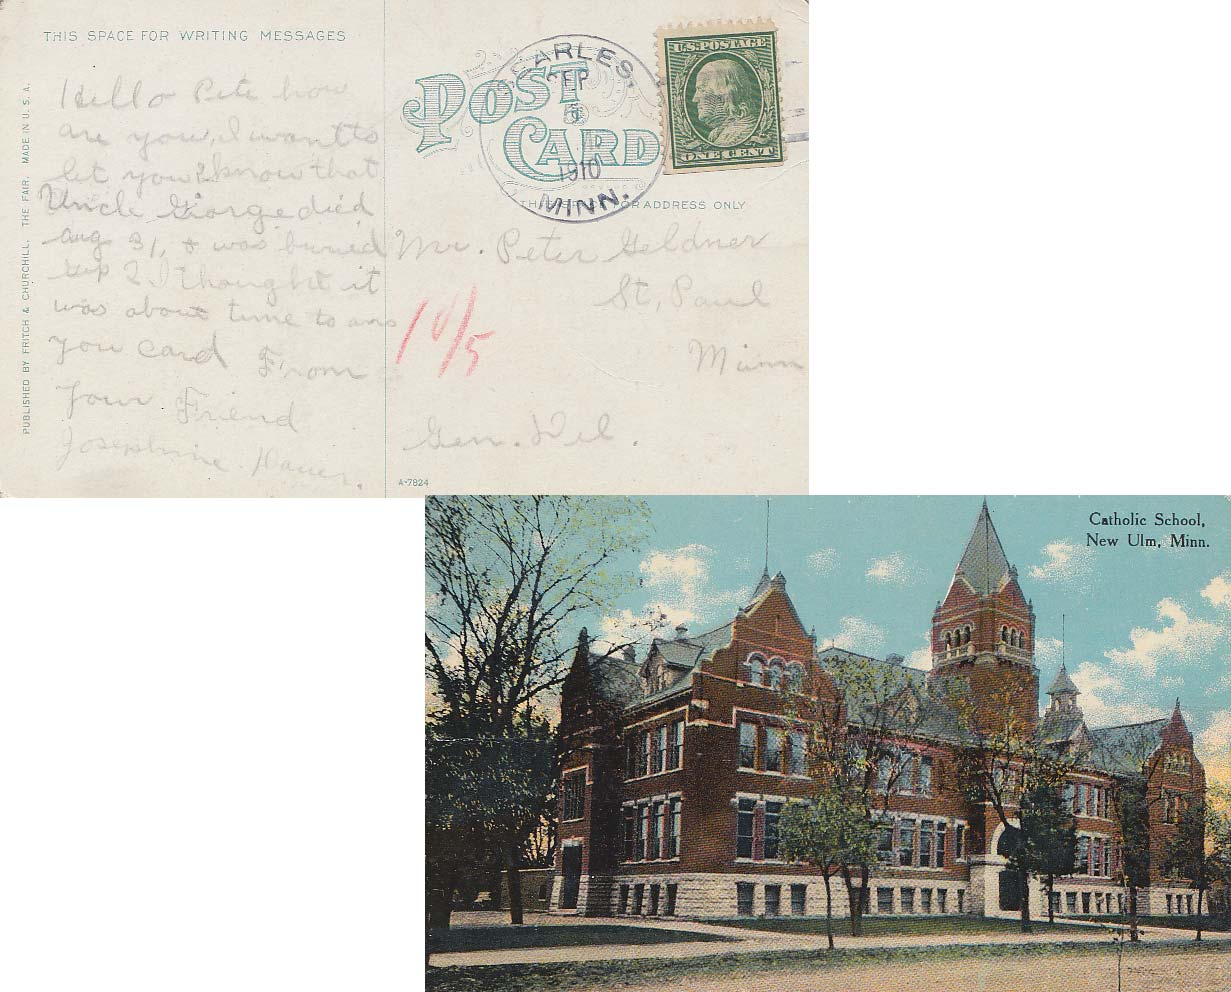 THIS SPACE FOR WRITING MESSAGES
PUBLISHED BY FRITCH & CHURCHILL, THE FAIR. MADE IN U.S.A.
Hello Pete how
are you, I want to
let you know that
Uncle George died
Aug 31, & was buried
Sep 2 I thought it
was about time to ans
you card From
Your Friend
Josephine
POST CARD
SEARLES,
SEP
5
1910
MINN.
U.S. POSTAGE
ONE CENT
THIS SPACE FOR ADDRESS ONLY
Mr. Peter Geldner
St, Paul
Minn
10/5
Gen. Del.
A-7824
Catholic School,
New Ulm, Minn.